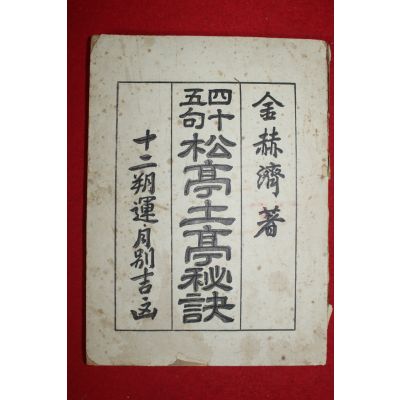 金赫濟著
四十五句
松亭土亭秘訣
十二朔運月別吉凶